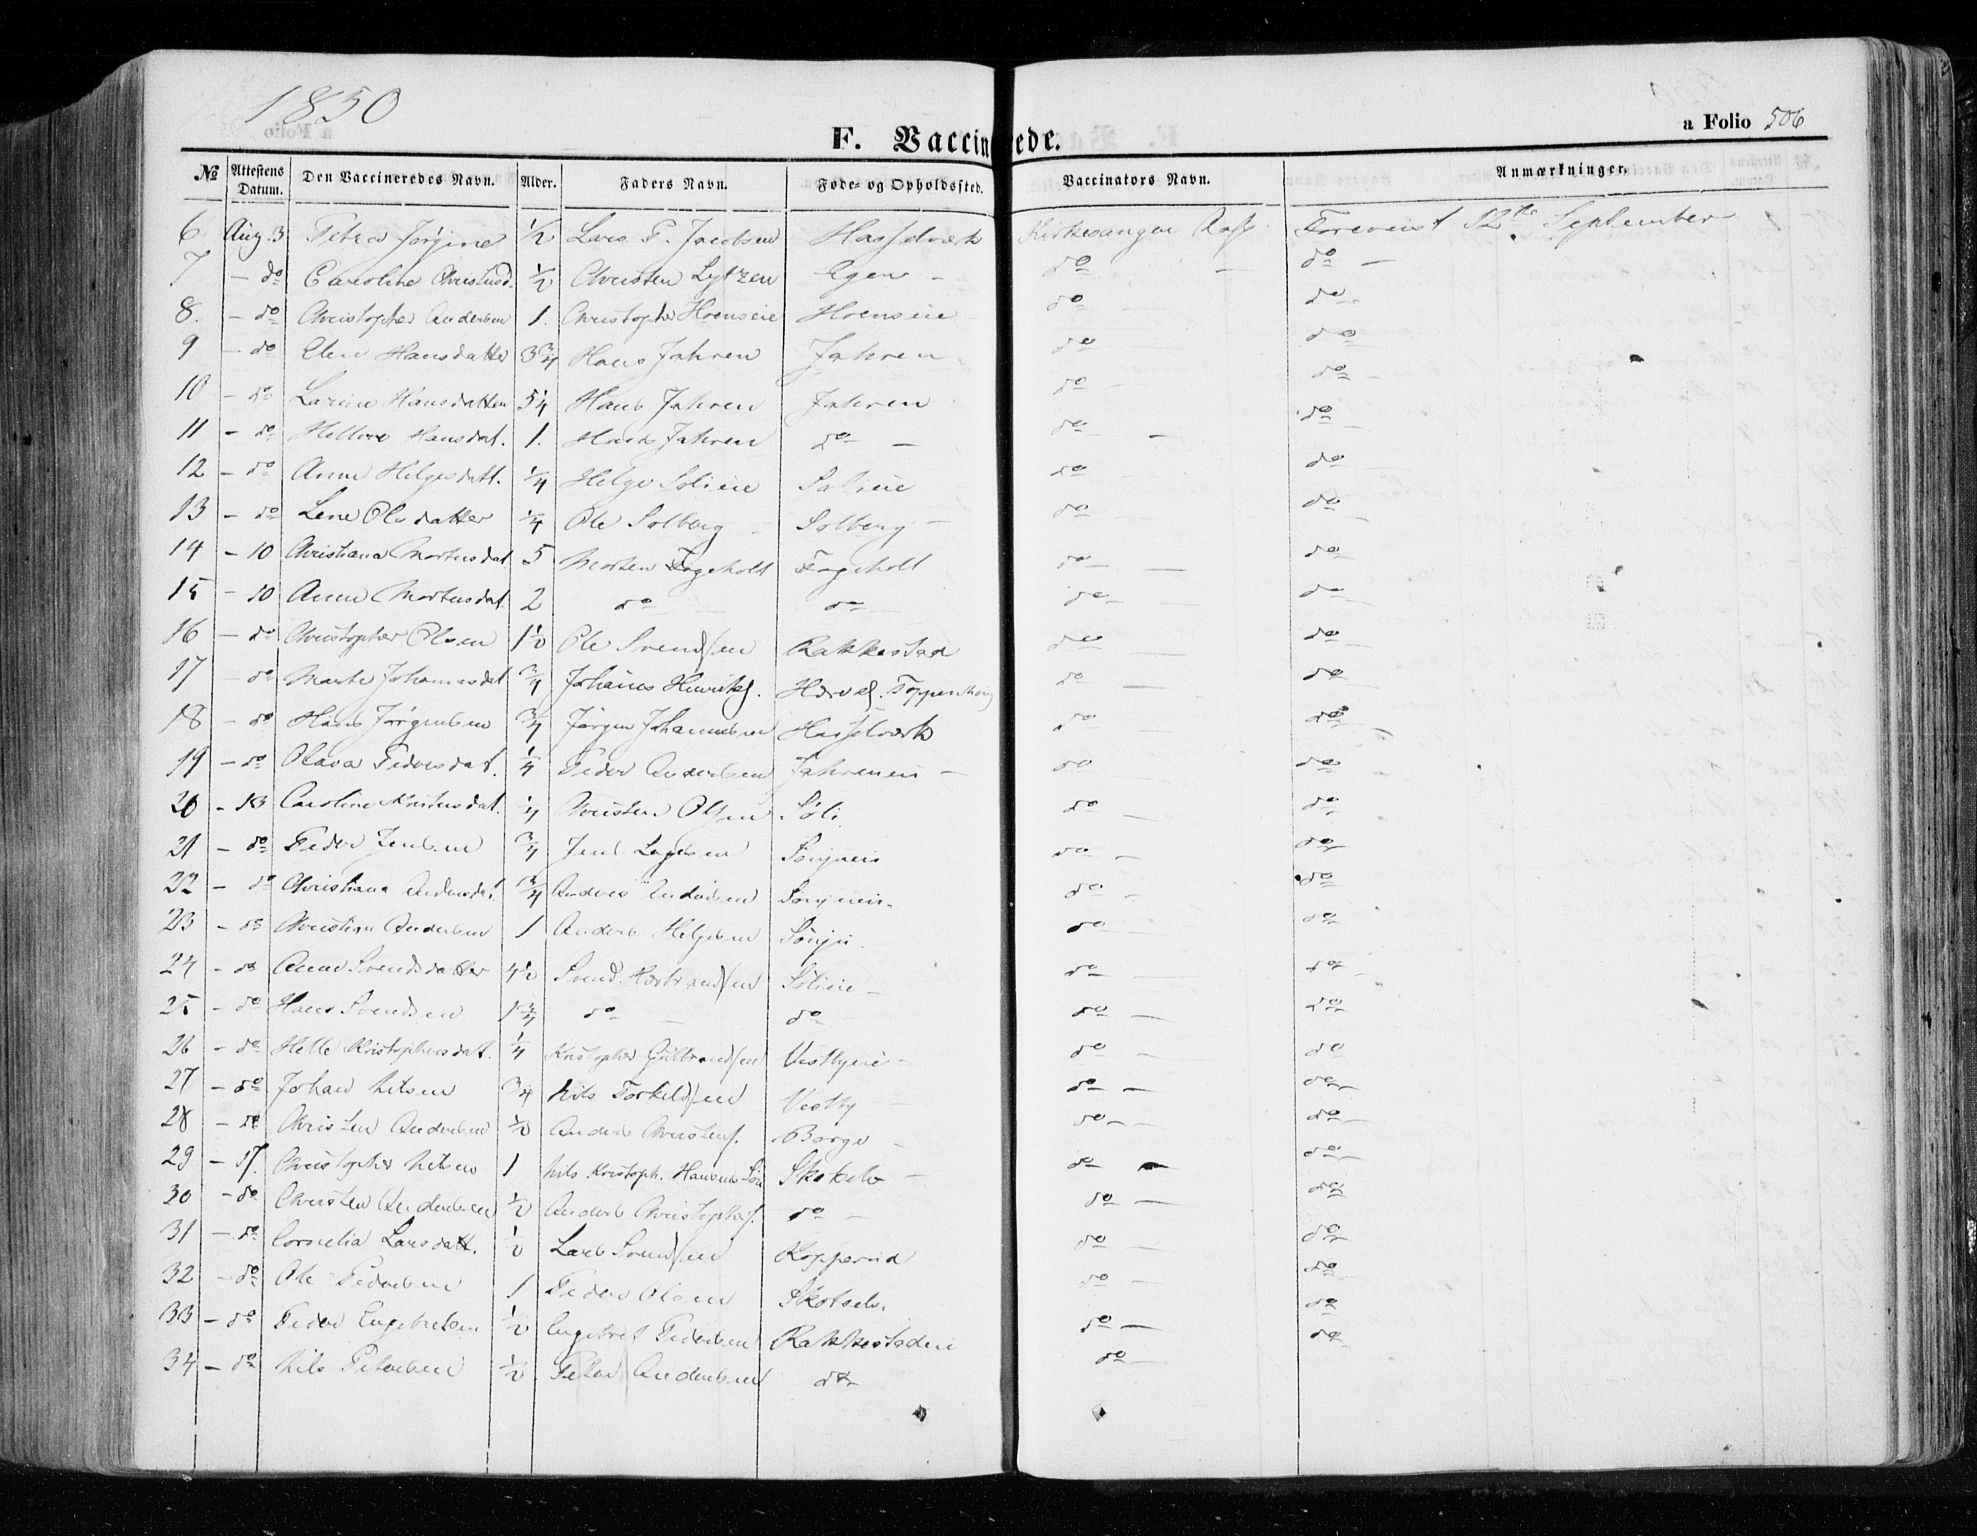 1850
a Folio 506
F. Vaccinerede.
№ Attestens Datum. Den Vaccineredes Navn. Alder. Faders Navn. Føde- og Opholdssted. Vaccinators Navn. Anmærkninger.
6 Aug. 3 Petra Jørgine 1/2 Lars P. Jacobsen Hasselværk Kirkesanger Foreviist 12te September
7 – do Caroline 1/2 Christen Lytzen Egen – do – do –
8. – do Christopher Andersen 1. Christopher Hoenseie Hoenseie do – do –
9 – do Elen Hansdatter 3 3/4 Hans Jahren Jahren do – do
10 – do Larine Hansdatter 5 1/4 Hans Jahren Jahren do – do –
11 – do Hellene Hansdat. 1. Hans Jahren do – do – do
12 – do Anne Helgesdatt. 1/4 Helge Solieie Solieie do do –
13 – do Lene Olsdatter 1/4 Ole Solberg – Solberg – do – do –
14 – 10 Christiana Mortensdat 5 Morten Fogeholt Fogeholt do – do –
15 – 10 Anne Mortensdat. 2 do – do – do – do –
16 – do Christopher Olsen 1 1/2 Ole Svendsen Rakkestad do – do
17 – do Marte Johannesdat 3/4 Johannes Henriks. do – do
18 – do Hans Jørgensen 3/4 Jørgen Johannesen Hasselværk do – do
19 – do Olava Pedersdat. 1/4 Peder Andersen Jahreneie – do do
20 – 13 Caroline Kristensdat. 1/4 Christen Olsen Søli. do – do
21 – do Peder Jensen 3/4 Jens Lagesen do – do
22 – do Christiana Andersdat. 3/4 Anders Andersen do – do
23 – do Christian Andersen 1 Anders Helgesen do – do
24 – do Anne Svendsdatter 4 1/2 Svend Solieie – do – do
25 – do Hans Svendsen 1 3/4 do – do – do – do
26 – do Helle Kristophersdat. 1/4 Kristopher Gulbrandsen Vestbyeie – do – do
27 – do Johan Nilsen 3/4 Nils Torkildsen Vestby do – do
28 – do Christen Andersen 1/2 Anders Christens. Borge – do – do
29 – 17. Christopher Nilsen 1 Nils Kristoph. Skotselv – do – do
30 – do Christen Andersen 1/2 Anders Christophs. do – do – do
31 – do Cornelia Larsdatt. 1/2 Lars Svendsen Kopperud do – do
32 – do Ole Pedersen 1 Peder Olsen Skotselv. do – do
33 – do Peder Engebretsen 1/2 Engebret Pedersen Rakkestadeie do – do
34 – do Nils Petersen 1/2 Peter Andersen do do – do